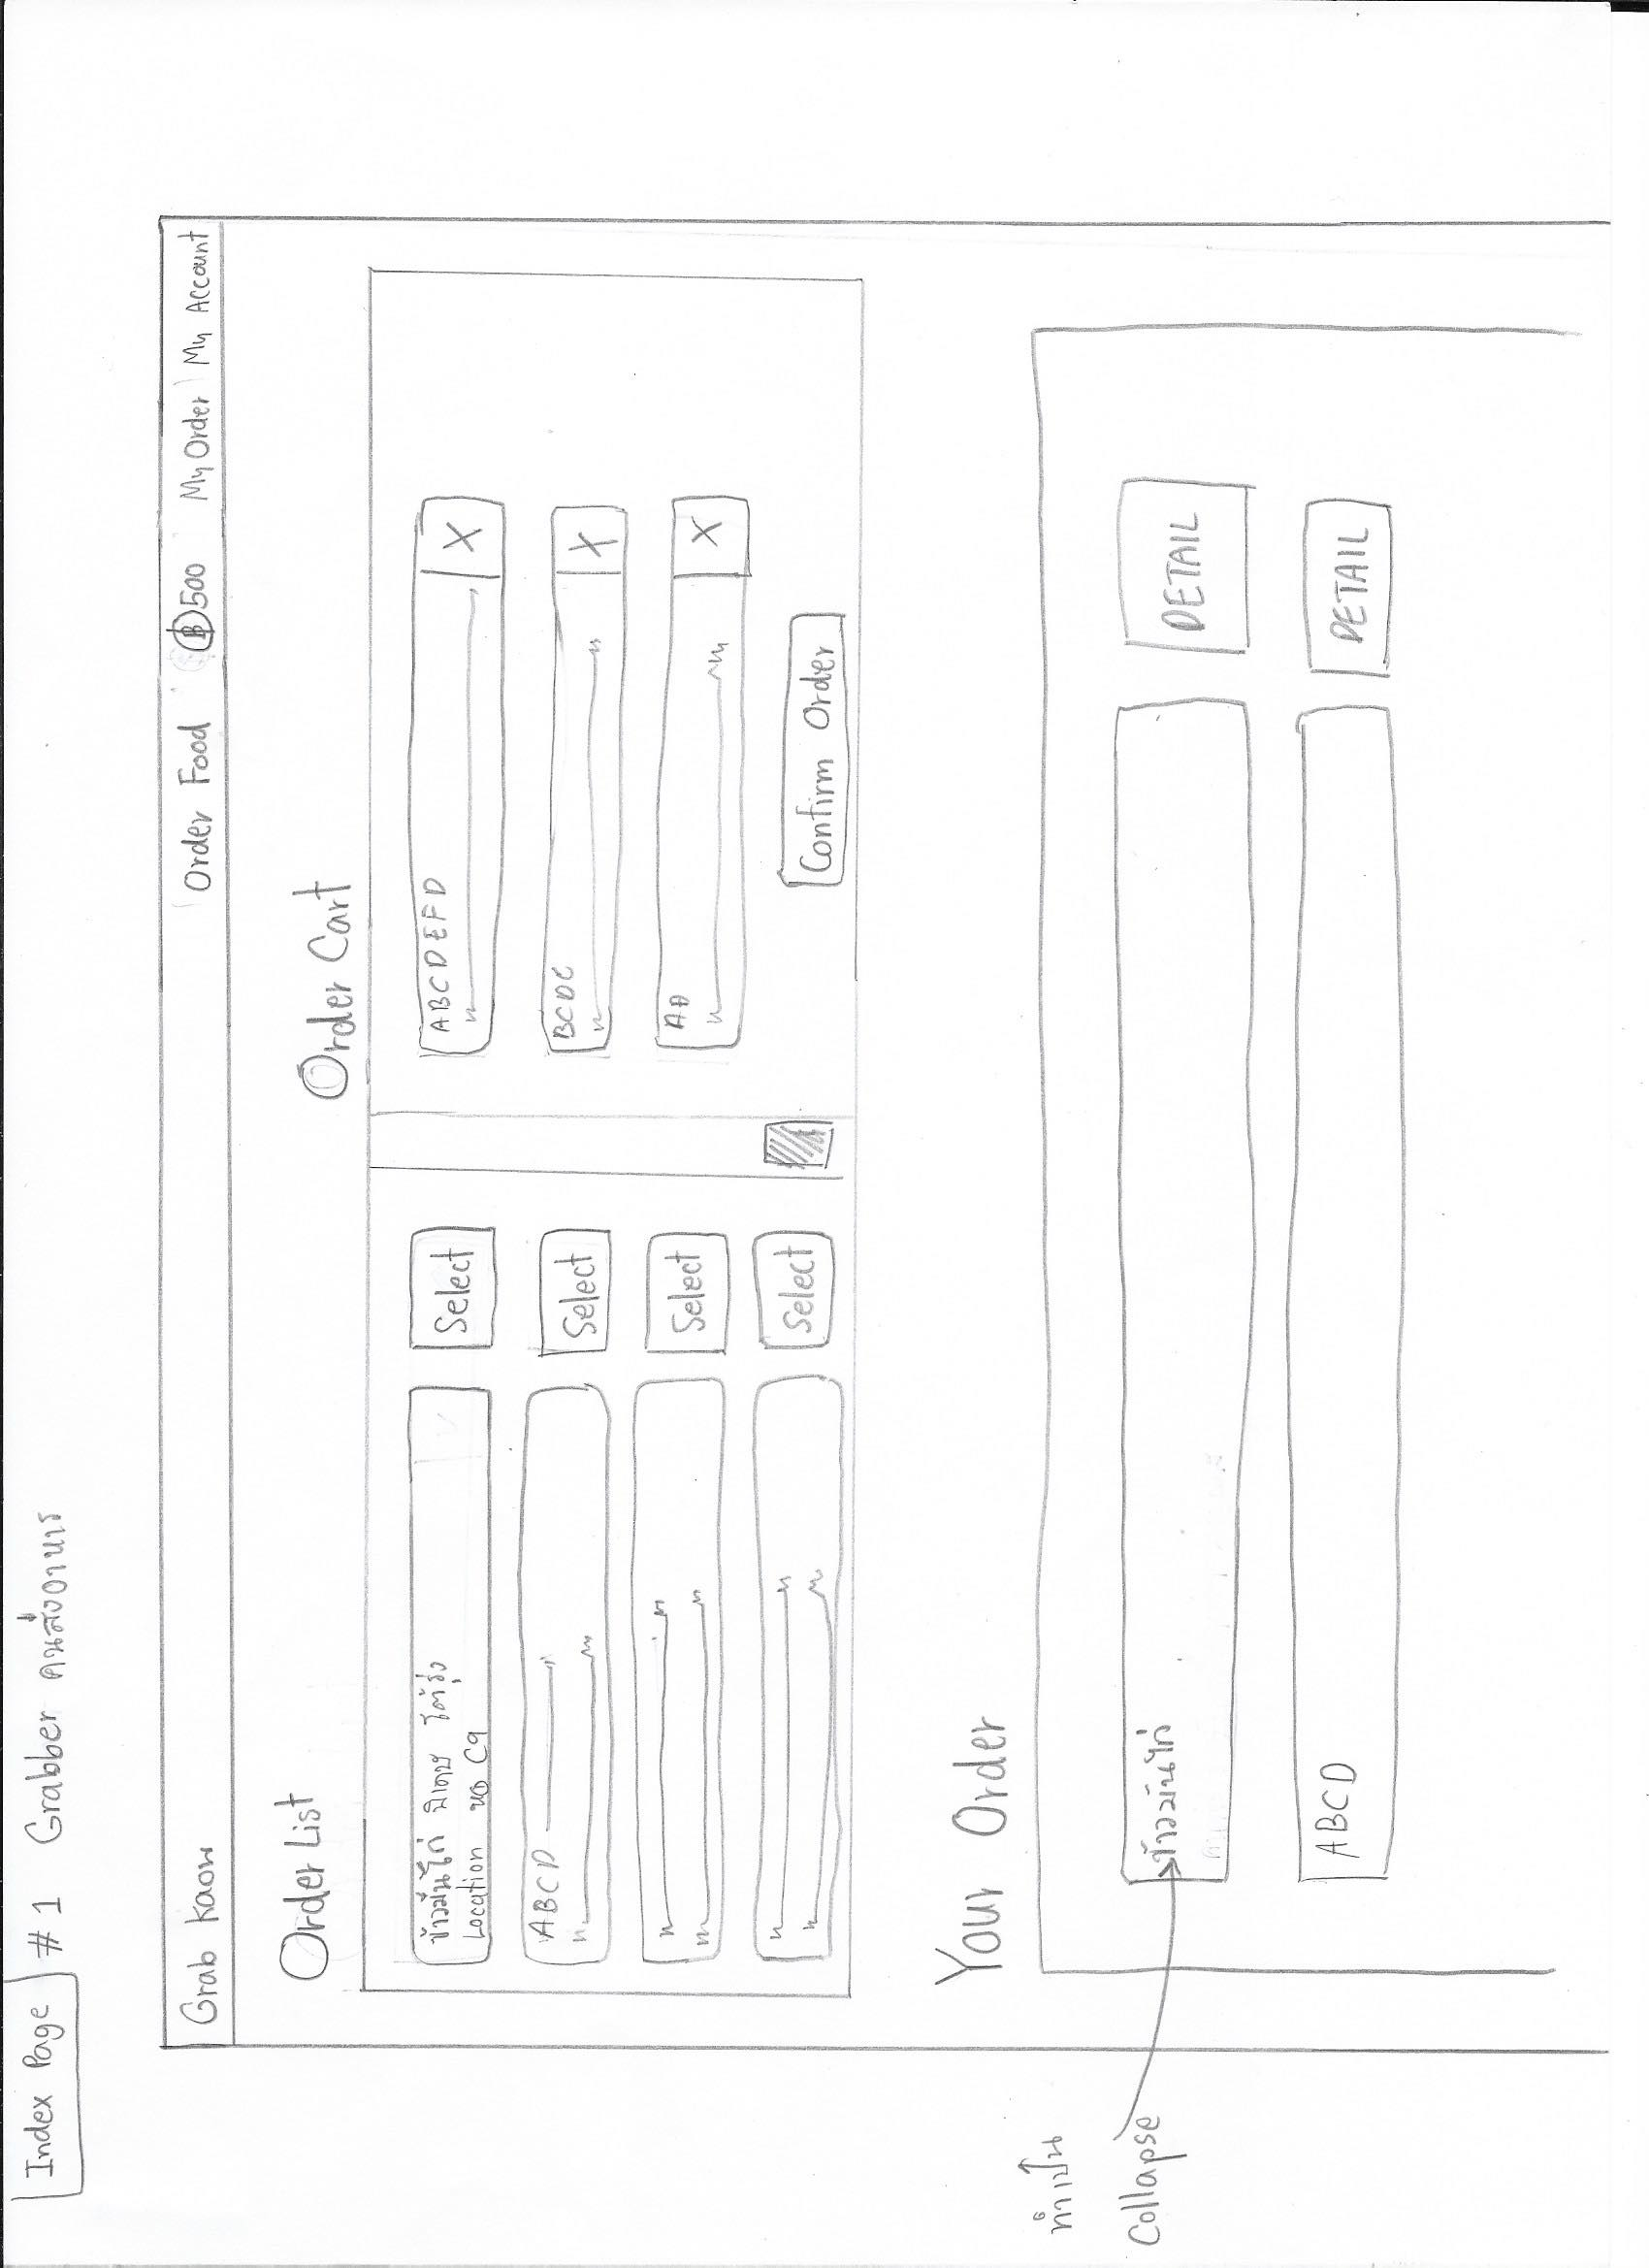 Index Page # 1 Grabber คนสั่งอาหาร
Grab Kaow Order Food ฿500 My Order My Account
Order List
ข้าวมันไก่ พิเศษ ใต้รุ่ง
Location หอ C9
Select
ABCD
Select
Select
Select
Order Cart
ABCDEFD
X
BCDC
X
AB
X
Confirm Order
Your Order
ข้าวมันไก่
DETAIL
ABCD
DETAIL
ทำเป็น
Collapse